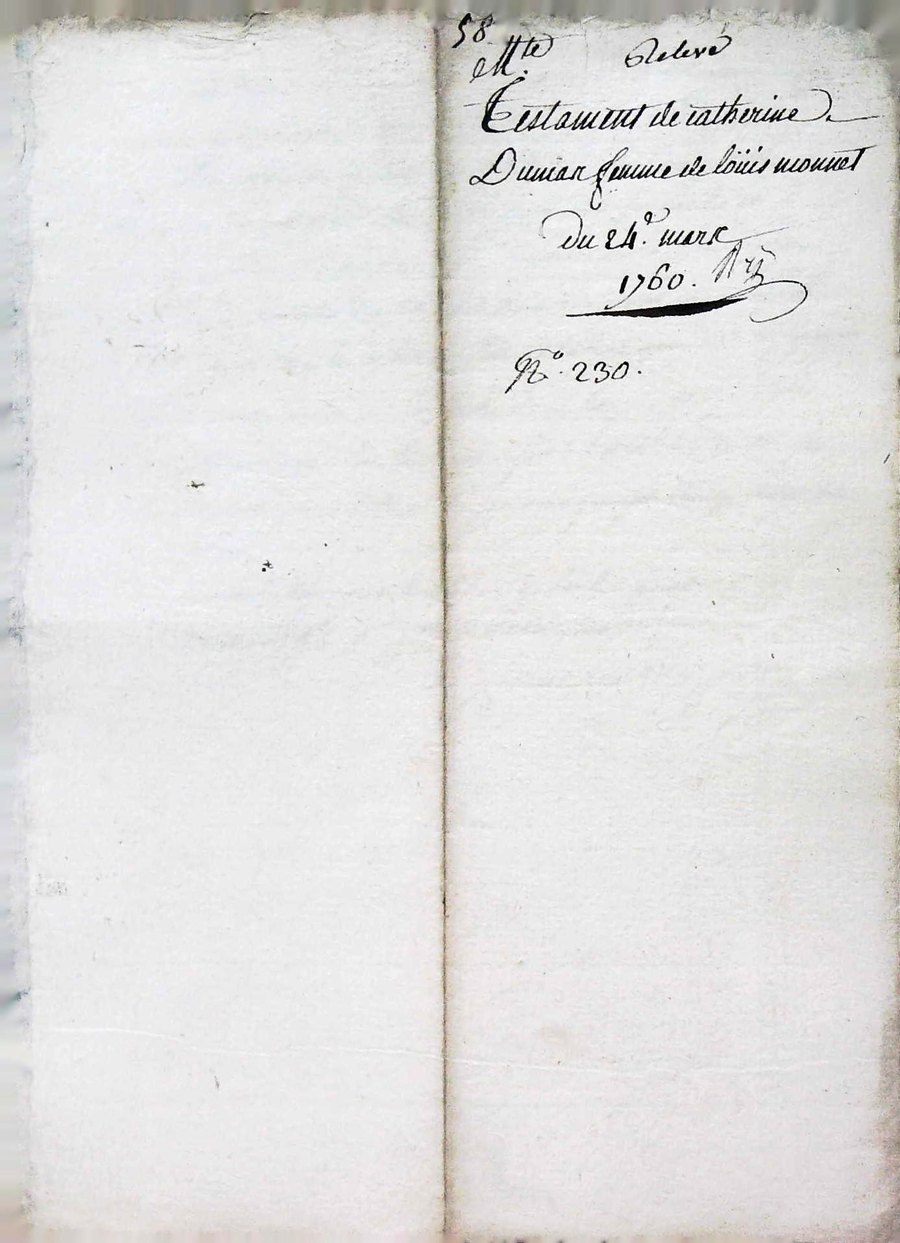 58
Mte. Relevé
Testament de catherine
Dumas femme de loüis monnet
du 24e. mars
1760.
No. 230.